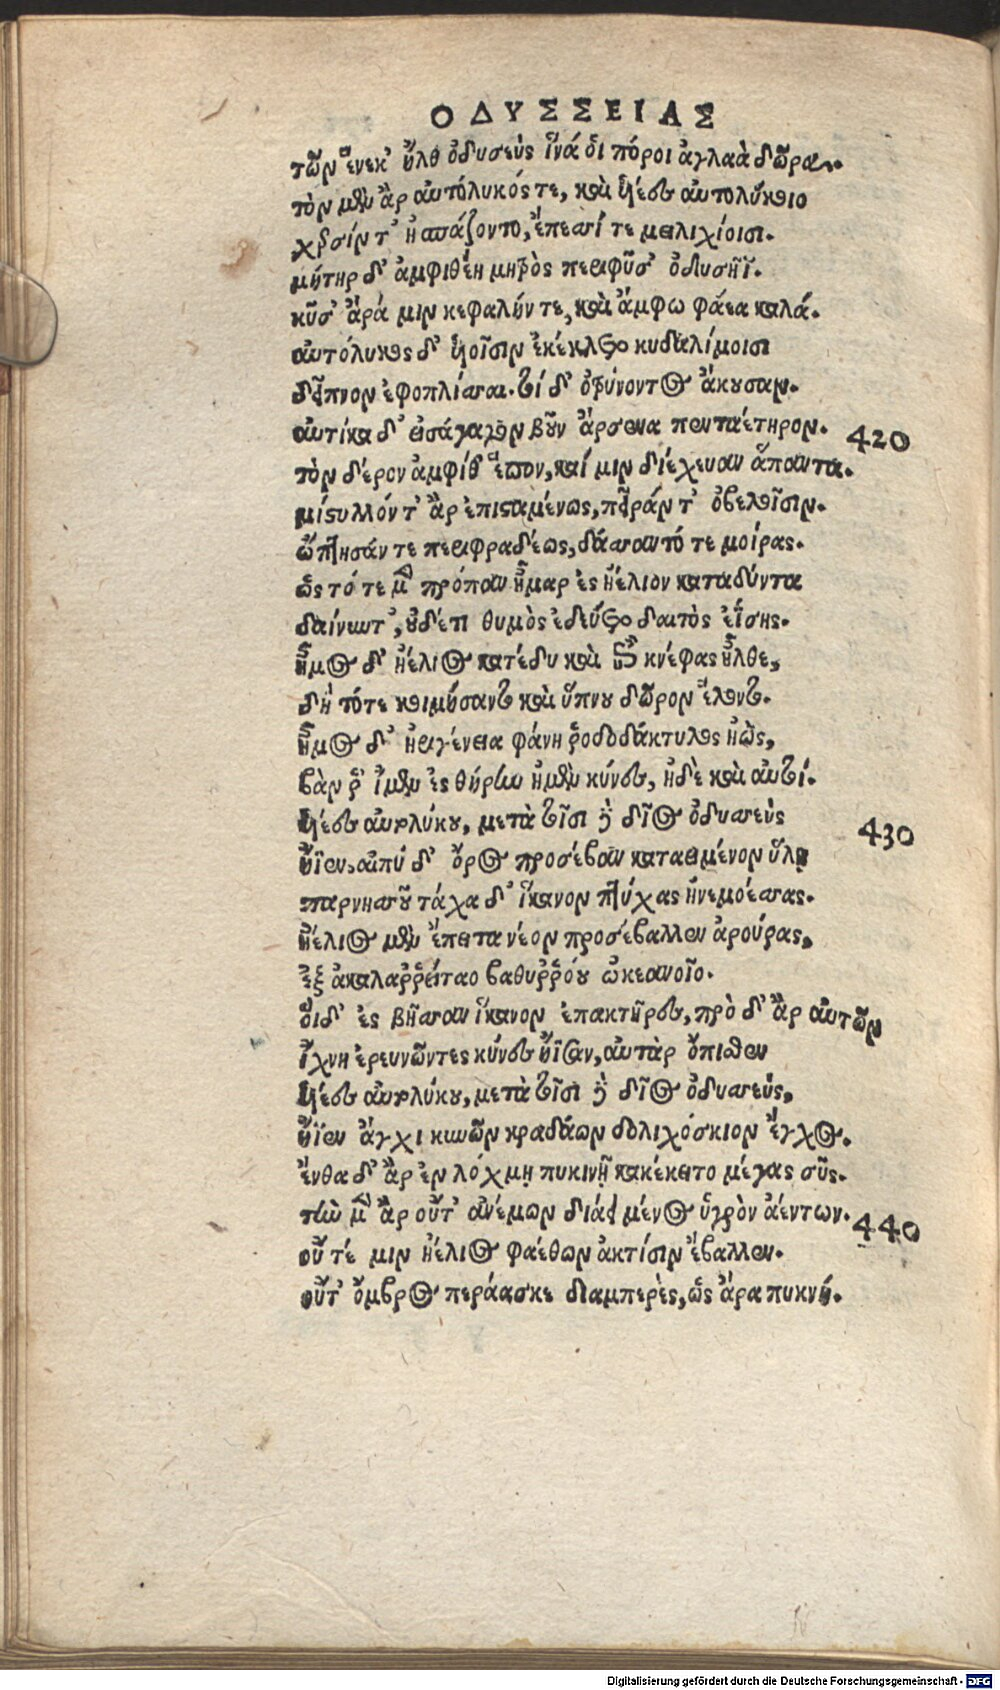 ΟΔΥΣΣΕΙΑΣ
τῶν ἕνεκ' ἦλθ' ὀδυσεὺς ἵνά οἱ πόροι ἀγλαὰ δῶρα.
τὸν μὲν ἂρ αὐτόλυκός τε, καὶ υἱέες αὐτολύκοιο
χερσίν τ' ἠσπάζοντο, ἔπεσσί τε μειλιχίοισι.
μήτηρ δ' ἀμφιθέη μητρὸς περιφῦσ' ὀδυσῆϊ.
κῦσ' ἄρά μιν κεφαλήν τε, καὶ ἄμφω φάεα καλά.
αὐτόλυκος δ' υἱοῖσιν ἐκέκλετο κυδαλίμοισι
δεῖπνον ἐφοπλίσσαι. τοὶ δ' ὀτρύνοντος ἄκουσαν.
αὐτίκα δ' εἰσάγαγον βοῦν ἄρσενα πενταέτηρον. 420
τὸν δέρον ἀμφίθ' ἕπον, καί μιν διέχευαν ἅπαντα.
μίστυλλόν τ' ἂρ ἐπισταμένως, πεῖράν τ' ὀβελοῖσιν.
ὤπτησάν τε περιφραδέως, δάσσαντό τε μοίρας.
ὣς τότε μὲν πρόπαν ἦμαρ ἐς ἠέλιον καταδύντα
δαίνυντ', οὐδέ τι θυμὸς ἐδεύετο δαιτὸς ἐΐσης.
ἦμος δ' ἠέλιος κατέδυ καὶ ἐπὶ κνέφας ἦλθε,
δὴ τότε κοιμήσαντο καὶ ὕπνου δῶρον ἕλοντο.
ἦμος δ' ἠριγένεια φάνη ῥοδοδάκτυλος ἠὼς,
βὰν ῥ' ἴμεν ἐς θήρην ἠμὲν κύνες, ἠδὲ καὶ αὐτοί.
υἱέες αὐτολύκου, μετὰ τοῖσι δὲ δῖος ὀδυσσεὺς 430
ἤϊεν, αἰπὺ δ' ὄρος προσέβαν καταειμένον ὕλῃ
παρνησσοῦ τάχα δ' ἵκανον πτύχας ἠνεμοέσσας.
ἠέλιος μὲν ἔπειτα νέον προσέβαλλεν ἀρούρας,
ἐξ ἀκαλαῤῥείταο βαθυῤῥόου ὠκεανοῖο.
οἱ δ' ἐς βῆσσαν ἵκανον ἐπακτῆρες, πρὸ δ' ἂρ αὐτῶν
ἴχνη ἐρευνῶντες κύνες ἤϊσαν, αὐτὰρ ὄπισθεν
υἱέες αὐτολύκου, μετὰ τοῖσι δὲ δῖος ὀδυσσεὺς,
ἤϊεν ἄγχι κυνῶν κραδάων δολιχόσκιον ἔγχος.
ἔνθα δ' ἂρ ἐν λόχμῃ πυκινῇ κακέκειτο μέγας σῦς.
τὴν μὲν ἂρ οὔτ' ἀνέμων διάει μένος ὑγρὸν ἀέντων. 440
οὔ τέ μιν ἠέλιος φαέθων ἀκτίσιν ἔβαλλεν.
οὔτ' ὄμβρος περάασκε διαμπερὲς, ὣς ἄρα πυκνή.
Digitalisierung gefördert durch die Deutsche Forschungsgemeinschaft - DFG